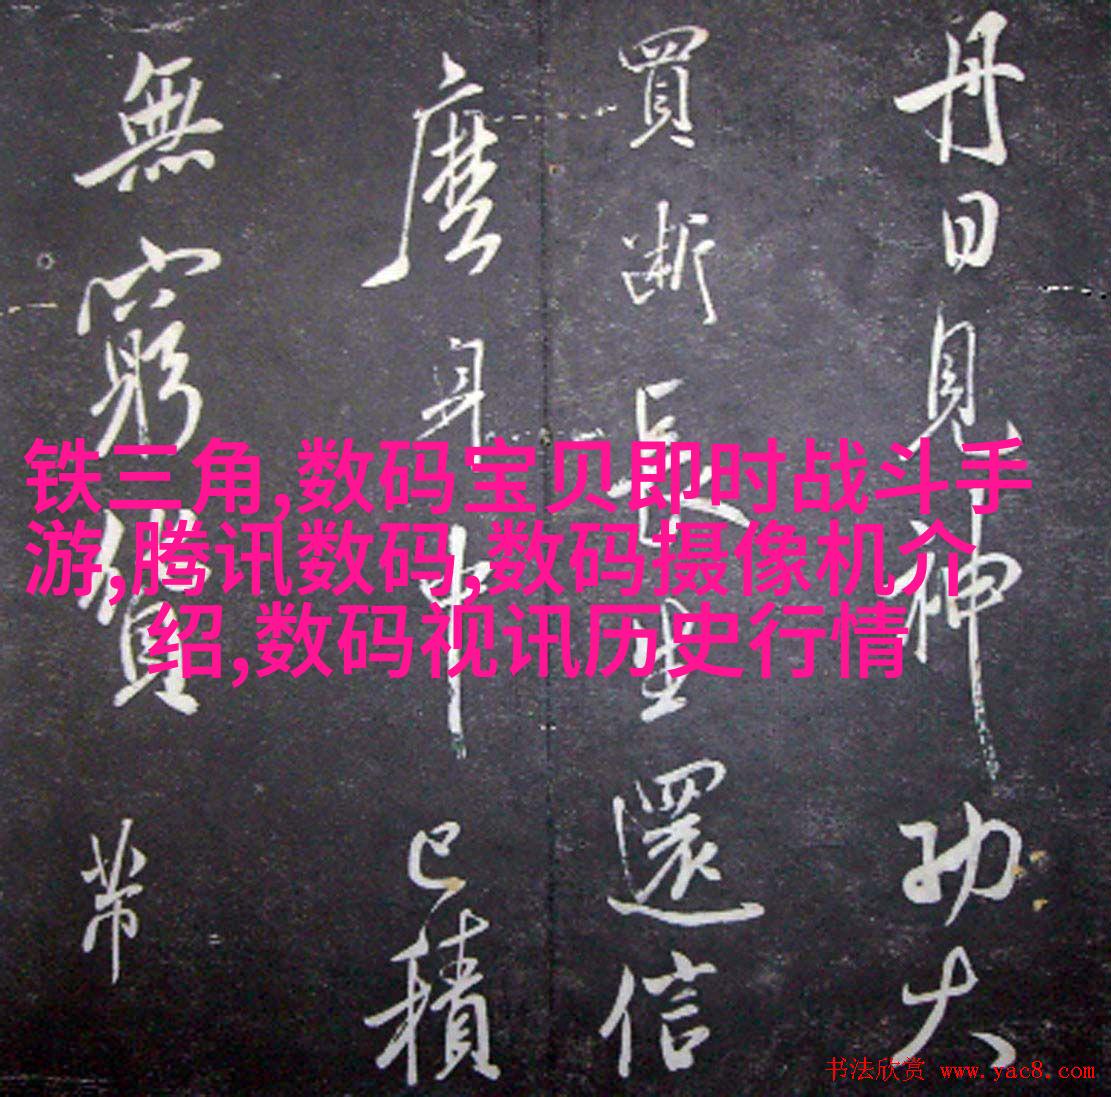 丹日見神功大
買斷長生還信
麼身中已積
無窮貨帶
铁三角,数码宝贝即时战斗手
游,腾讯数码,数码摄像机介
绍,数码视讯历史行情
书法欣赏 www.yac8.com